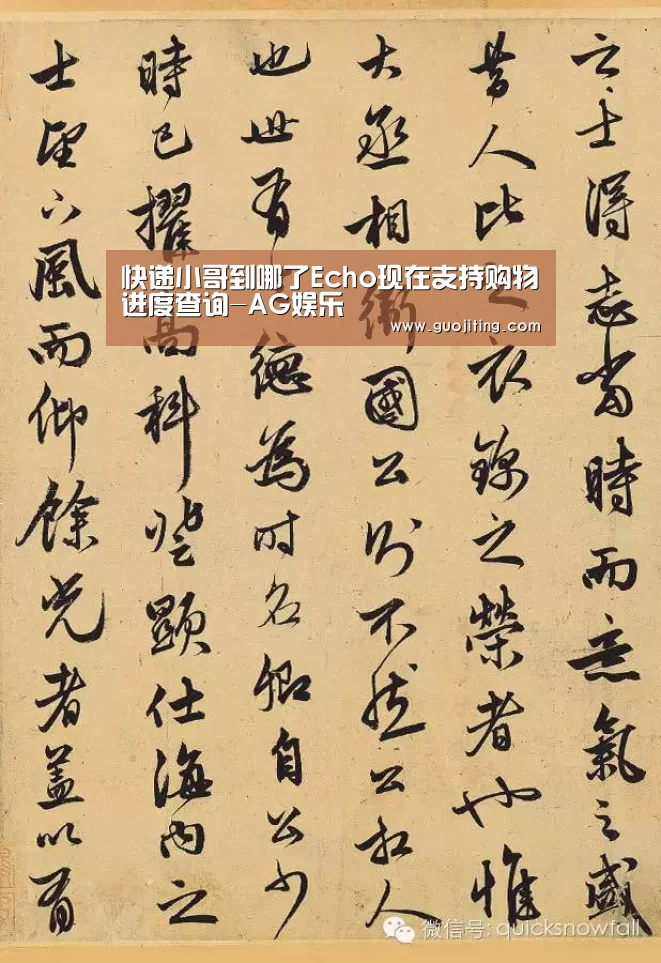 之士得志當時而意氣之盛
昔人比之衣錦之榮者也惟
大丞相衛國公則不然公相人
也世有德為时名卿自公少
時已擢高科登顯仕海內之
士望下風而仰餘光者蓋以有
快递小哥到哪了Echo现在支持购物
进度查询-AG娱乐
www.guojiting.com
微信号: quicksnowfall